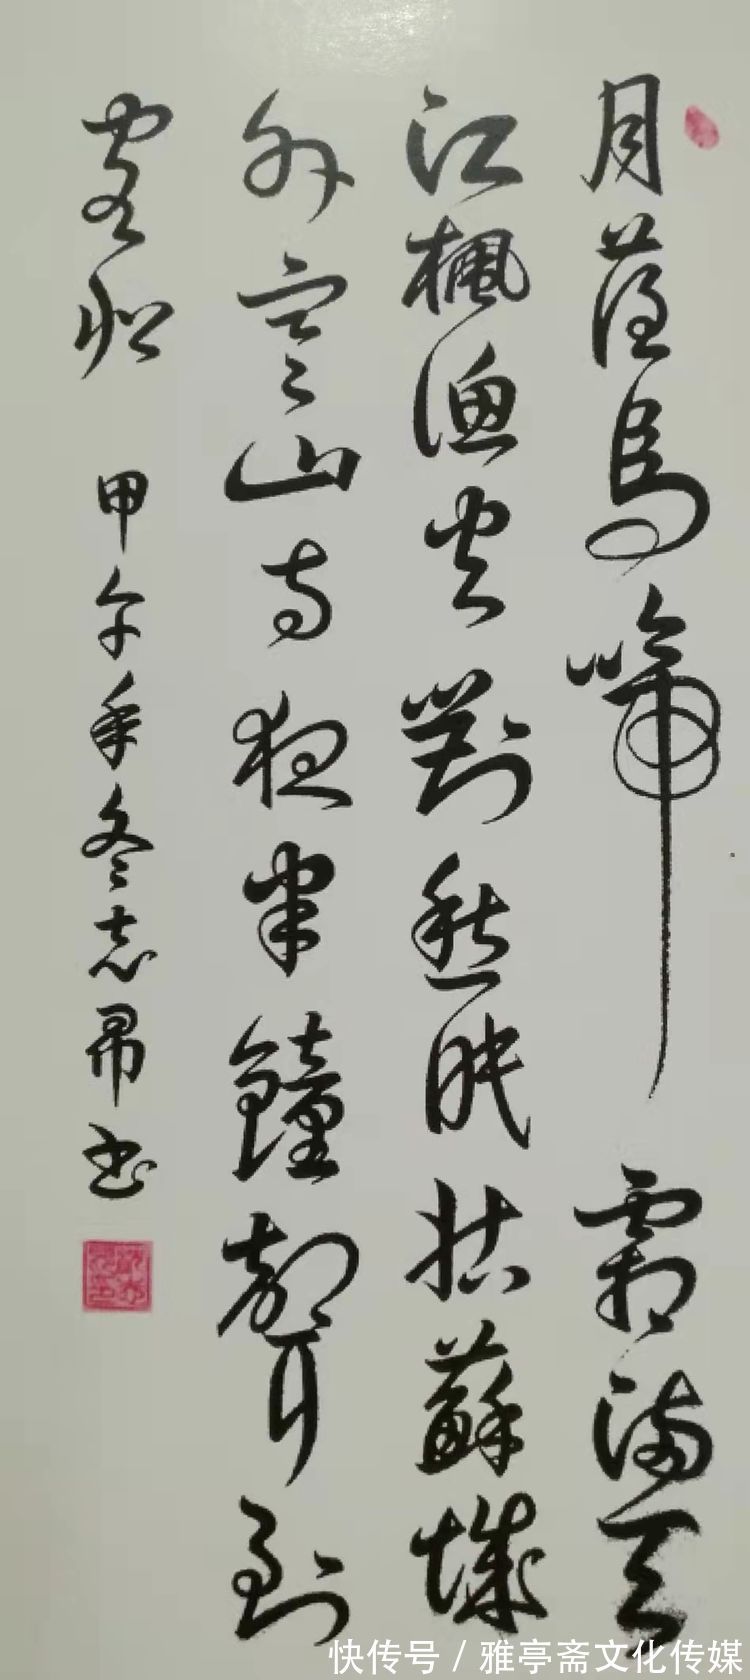 月落烏啼霜滿天
江楓漁火對愁眠姑蘇城
外寒山寺夜半鐘聲到
客船 甲午年冬志昂書
快传号 / 雅亭斋文化传媒